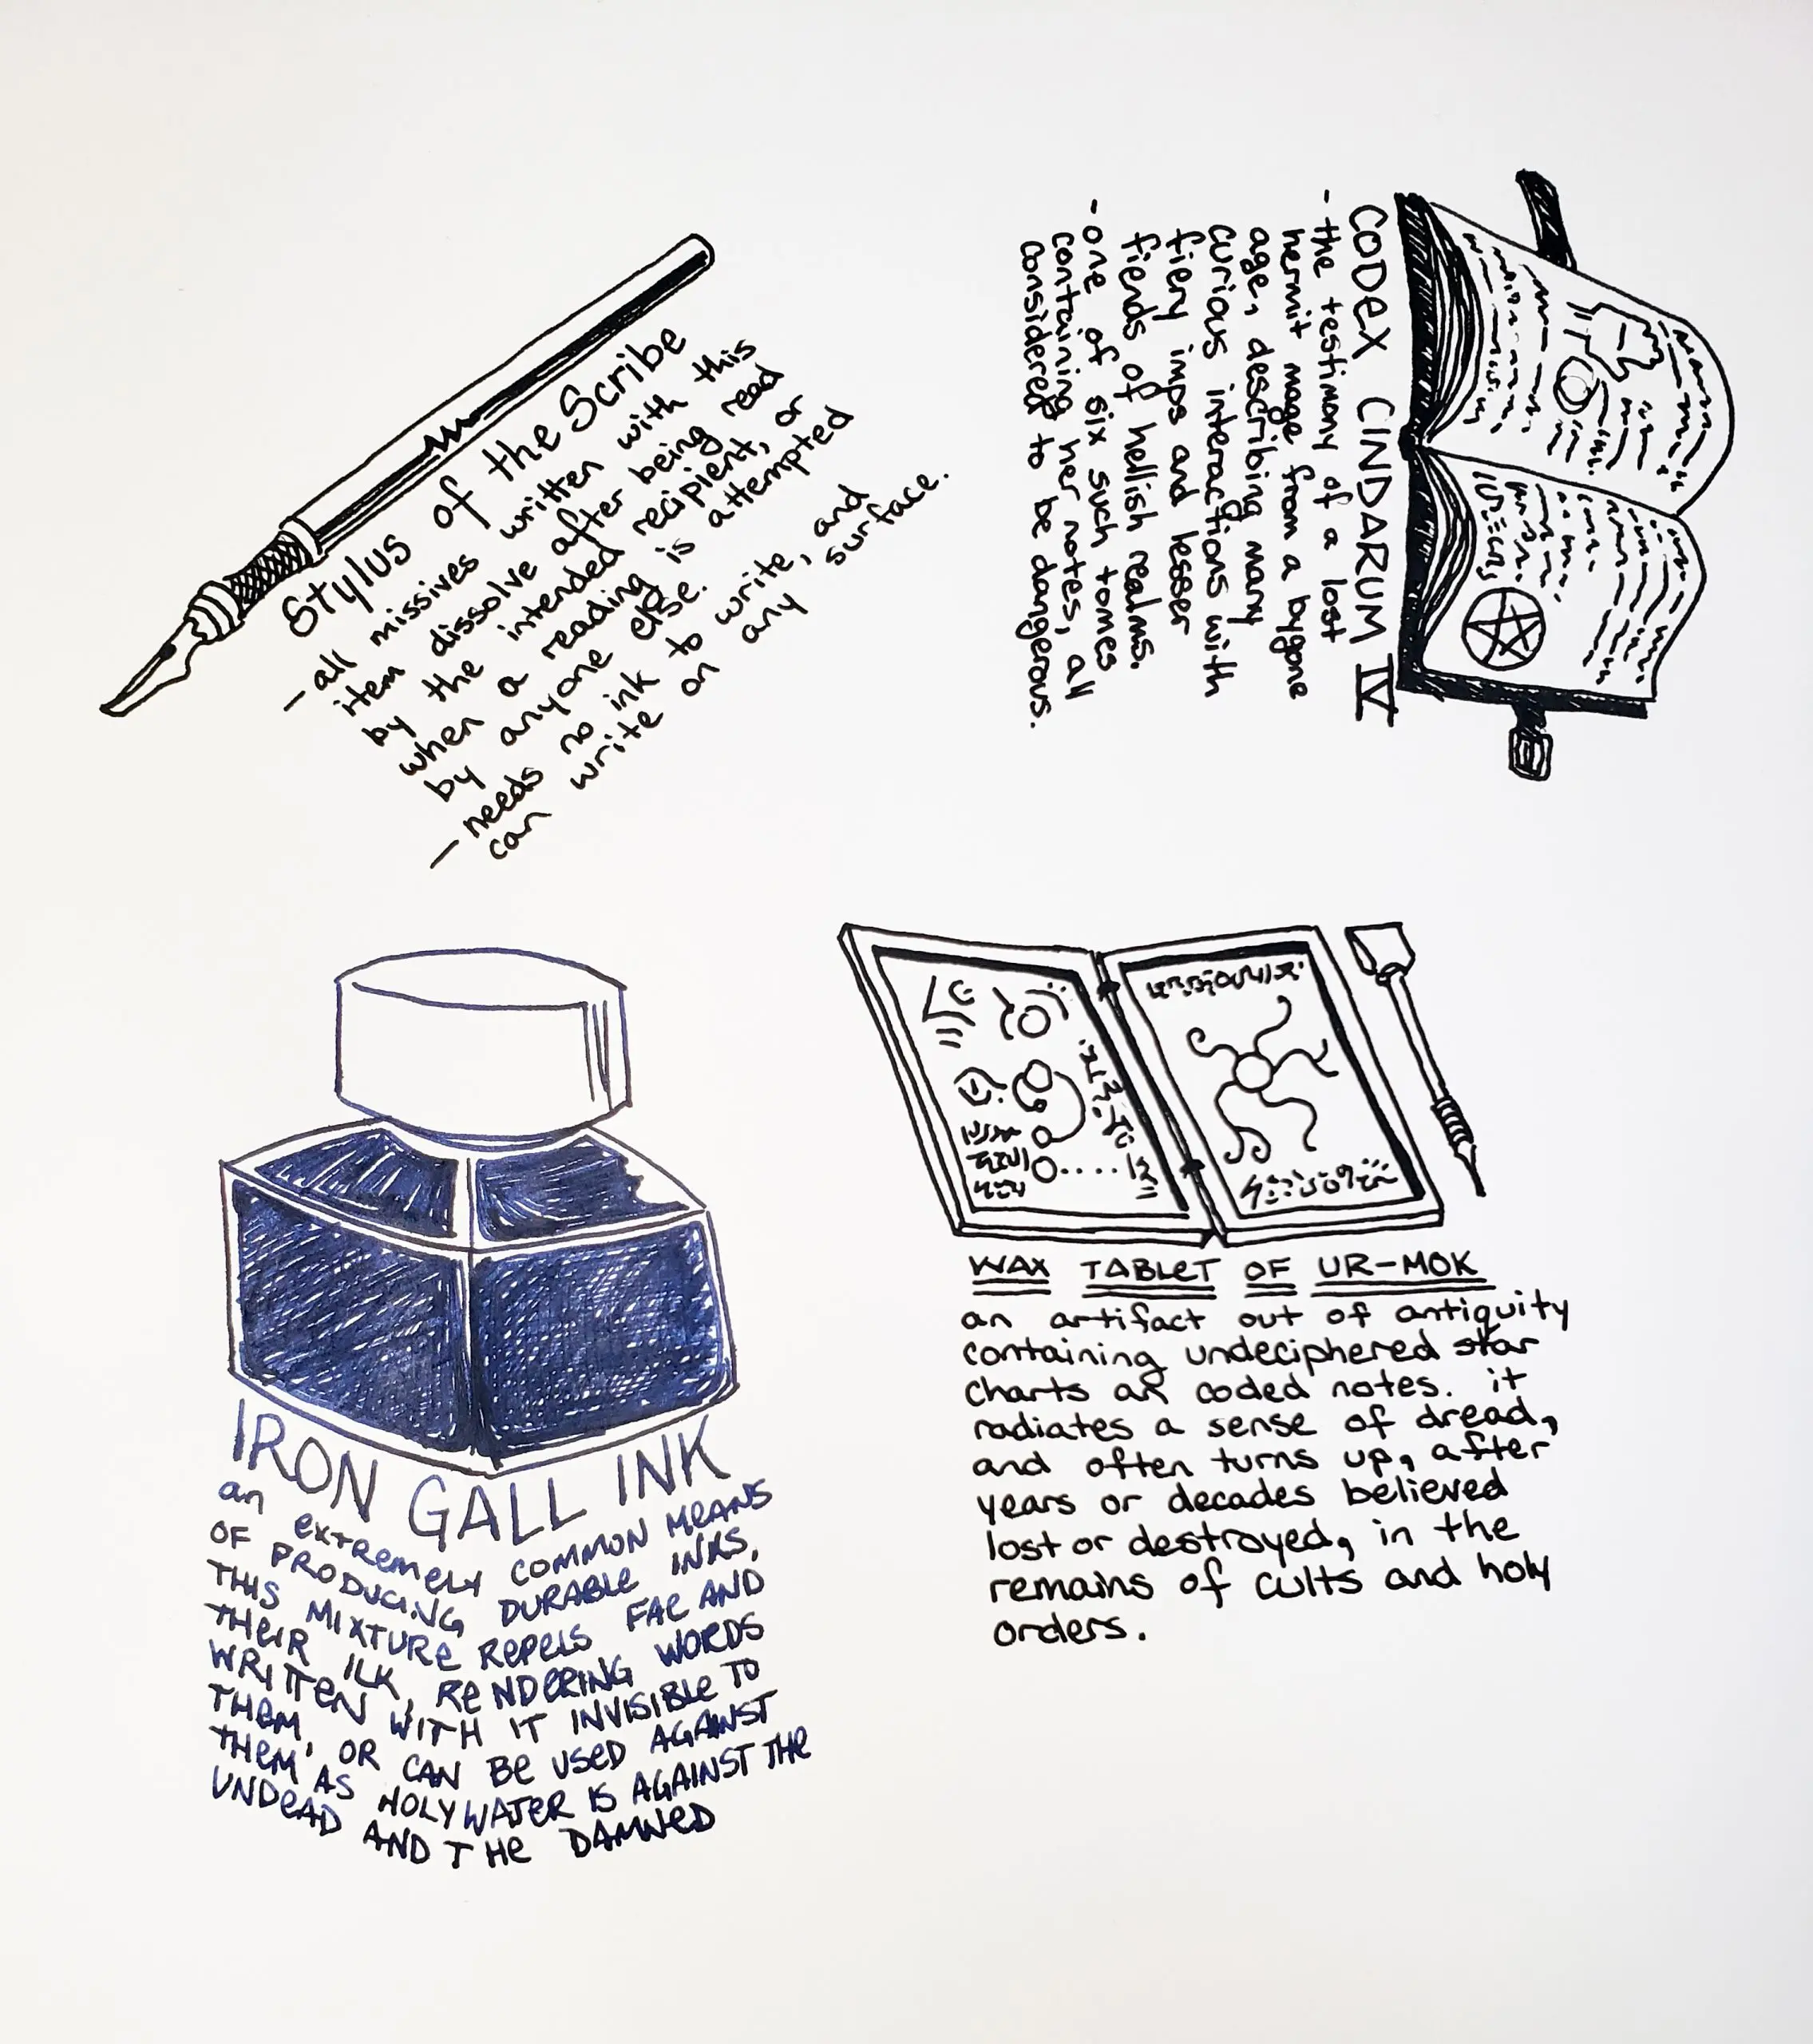 Stylus of the Scribe
- all missives written with this
item dissolve after being read
by the intended recipient, or
when a reading is attempted
by anyone else.
- needs no ink to write, and
can write on any surface.
CODEX CINDARUM IV
- the testimony of a lost
hermit mage from a bygone
age, describing many
curious interactions with
fiery imps and lesser
fiends of hellish realms.
- one of six such tomes
containing her notes, all
considered to be dangerous.
IRON GALL INK
an extremely COMMON MEANS
OF PRODUCING DURABLE INKS,
THIS MIXTURE REPELS FAE AND
THEIR ILK, RENDERING WORDS
WRITTEN WITH IT INVISIBLE TO
THEM, OR CAN BE USED AGAINST
THEM AS HOLY WATER IS AGAINST THE
UNDEAD AND THE DAMNED
WAX TABLET OF UR-MOK
an artifact out of antiquity
containing undeciphered star
charts an coded notes. it
radiates a sense of dread,
and often turns up, after
years or decades believed
lost or destroyed, in the
remains of cults and holy
orders.